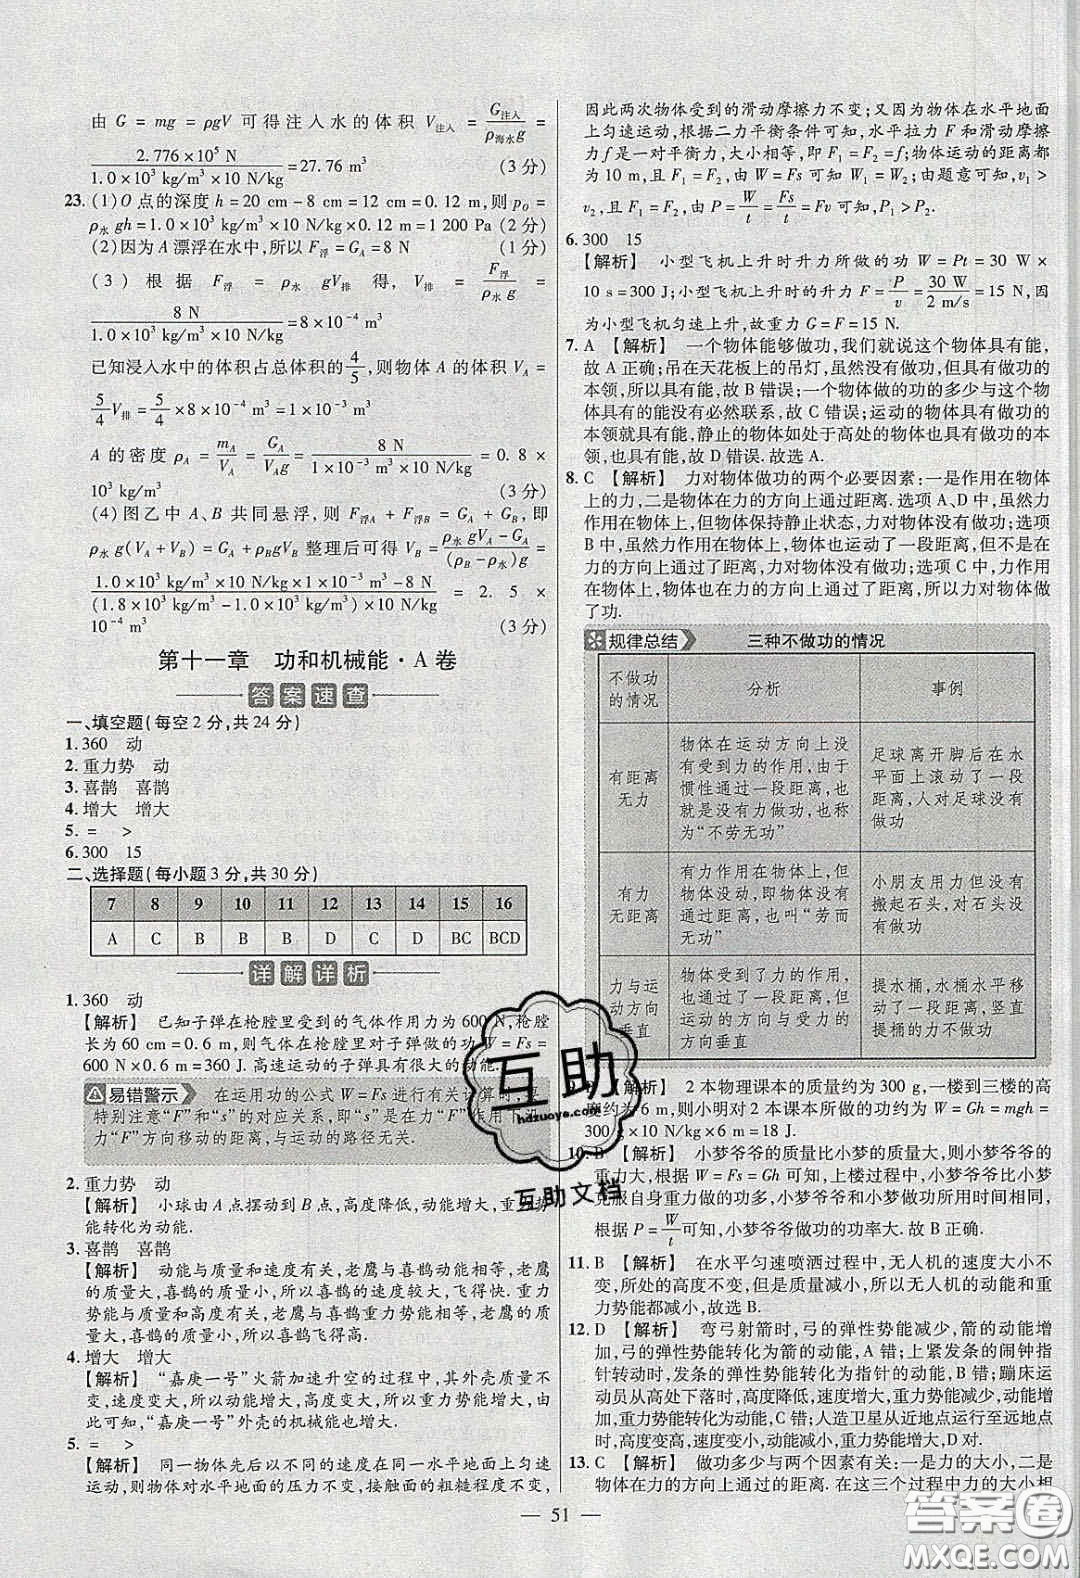 由 G = mg = ρgV 可得注入水的体积 V注入 = G注入/ρ海水g =
2.776×10⁵ N/1.0×10³ kg/m³×10 N/kg = 27.76 m³ (3分)
23. (1)O 点的深度 h = 20 cm - 8 cm = 12 cm = 0.12 m,则 pO =
ρ水 gh = 1.0×10³ kg/m³×10 N/kg×0.12 m = 1 200 Pa (2分)
(2)因为 A 漂浮在水中,所以 F浮 = GA = 8 N (1分)
(3) 根据 F浮 = ρ水 gV排 得, V排 = F浮/ρ水 g =
8 N/1.0×10³ kg/m³×10 N/kg = 8×10⁻⁴ m³
已知浸入水中的体积占总体积的4/5,则物体 A 的体积 VA =
5/4 V排 = 5/4×8×10⁻⁴ m³ = 1×10⁻³ m³
A 的密度 ρA = mA/VA = GA/VAg = 8 N/1×10⁻³ m³×10 N/kg = 0.8×
10³ kg/m³ (3分)
(4)图乙中 A、B 共同悬浮,则 F浮A + F浮B = GA + GB, 即
ρ水 g(VA + VB) = GA + ρBgVB 整理后可得 VB = ρ水 gVA - GA/(ρB - ρ水)g =
1.0×10³ kg/m³×10 N/kg×1×10⁻³ m³ - 8 N/(1.8×10³ kg/m³ - 1.0×10³ kg/m³)×10 N/kg = 2.5×
10⁻⁴ m³ (3分)
第十一章 功和机械能·A卷
答案速查
一、填空题(每空2分,共24分)
1. 360 动
2. 重力势 动
3. 喜鹊 喜鹊
4. 增大 增大
5. = >
6. 300 15
二、选择题(每小题3分,共30分)
7 8 9 10 11 12 13 14 15 16
A C B B B D C B BC BCD
详解详析
1. 360 动
【解析】 已知子弹在枪膛里受到的气体作用力为 600 N,枪膛
长为 60 cm = 0.6 m,则气体在枪膛里对子弹做的功 W = Fs =
600 N×0.6 m = 360 J. 高速运动的子弹具有很大的动能.
易错警示 在运用功的公式 W = Fs 进行有关计算时,要
特别注意“F”和“s”的对应关系,即“s”是在力“F”作用下沿
力“F”方向移动的距离,与运动的路径无关.
2. 重力势 动
【解析】 小球由 A 点摆动到 B 点,高度降低,动能增大,重力势
能转化为动能.
3. 喜鹊 喜鹊
【解析】 动能与质量和速度有关,老鹰与喜鹊动能相等,老鹰
的质量大,喜鹊的质量小,所以喜鹊的速度较大,飞得快. 重力
势能与质量和高度有关,老鹰与喜鹊重力势能相等,老鹰的质
量大,喜鹊的质量小,所以喜鹊飞得高.
4. 增大 增大
【解析】 “嘉庚一号”火箭加速升空的过程中,其外壳质量不
变,速度变大,所以动能增大,高度变大,所以重力势能增大,由
此可知,“嘉庚一号”外壳的机械能也增大.
5. = >
【解析】 同一物体先后以不同的速度在同一水平地面上匀速
运动,则物体对水平地面的压力不变,接触面的粗糙程度不变,
因此两次物体受到的滑动摩擦力不变;又因为物体在水平地面
上匀速运动,根据二力平衡条件可知,水平拉力 F 和滑动摩擦
力 f 是一对平衡力,大小相等,即 F₁ = F₂ = f;物体运动的距离都
为 10 m,且 F₁ = F₂,由 W = Fs 可知,W₁ = W₂;由题意可知,v₁ >
v₂,且 F₁ = F₂,由 P = W/t = Fs/t = Fv 可知,P₁ > P₂.
6. 300 15
【解析】 小型飞机上升时升力所做的功 W = Pt = 30 W×
10 s = 300 J;小型飞机上升时的升力 F = P/v = 30 W/2 m/s = 15 N,因
为小型飞机匀速上升,故重力 G = F = 15 N.
7. A 【解析】 一个物体能够做功,我们就说这个物体具有能,
故 A 正确;吊在天花板上的吊灯,虽然没有做功,但具有做功的
本领,所以具有能,故 B 错误;一个物体做的功的多少与这个物
体具有的能没有必然联系,故 C 错误;运动的物体具有做功的
本领就具有能,静止的物体如处于高处的物体也具有做功的本
领,也具有能,故 D 错误. 故选 A.
8. C 【解析】 力对物体做功的两个必要因素:一是作用在物体
上的力,二是物体在力的方向上通过距离. 选项 A、D 中,虽然力
作用在物体上,但物体保持静止状态,力对物体没有做功;选项
B 中,虽然力作用在物体上,物体也运动了一段距离,但不是在
力的方向上,所以力对物体没有做功;选项 C 中,力作用在
物体上,物体也在力的方向上通过了距离,所以力对物体做
了功.
规律总结 三种不做功的情况
不做功的情况 分析 事例
有距离无力 物体在运动方向上没有受到力的作用,由于惯性通过一段距离,也就是没有力做功,也称为“不劳无功” 足球离开脚后在水平面上滚动了一段距离,人对足球没有做功
有力无距离 有力作用在物体上,但物体没动,即物体没有在力的作用方向上通过距离,也叫“劳而无功” 小朋友用力但没有搬起石头,对石头没有做功
力与运动方向垂直 物体受到了力的作用,也运动了一段距离,但运动的方向与受力的方向垂直 提水桶,水桶水平移动了一段距离,竖直提桶的力没有做功
9. B 【解析】 2 本物理课本的质量约为 300 g,一楼到三楼的高
度约为 6 m,则小明对 2 本课本所做的功约为 W = Gh = mgh =
300 g×10 N/kg×6 m = 18 J.
10. B 【解析】 小梦爷爷的质量比小梦的质量大,则小梦爷爷的
重力大,根据 W = Fs = Gh 可知,上楼过程中,小梦爷爷比小梦
克服自身重力做的功多,小梦爷爷和小梦做功所用时间相同,
根据 P = W/t 可知,小梦爷爷做功的功率大. 故 B 正确.
11. B 【解析】 在水平匀速喷洒过程中,无人机的速度大小不
变,所处的高度不变,但是质量减小,所以无人机的动能和重
力势能都减小,故选 B.
12. D 【解析】 弯弓射箭时,弓的弹性势能减少,箭的动能增
加,弓的弹性势能转化为箭的动能,A 错;上紧发条的闹钟指
针转动时,发条的弹性势能转化为指针的动能,B 错;蹦床运
动员从高处下落时,高度降低,速度增大,重力势能减少,动能
增加,重力势能转化为动能,C 错;人造卫星从近地点运行至远地点
时,高度变高,速度变小,动能减小,重力势能增大,D 对.
13. C 【解析】 做功多少与两个因素有关:一是力的大小,二是
物体在力的方向上通过的距离. 在这三个过程中力的大小相
— 51 —
互助
hdzuoye.com
互助文档
答案圈
MXQE.COM